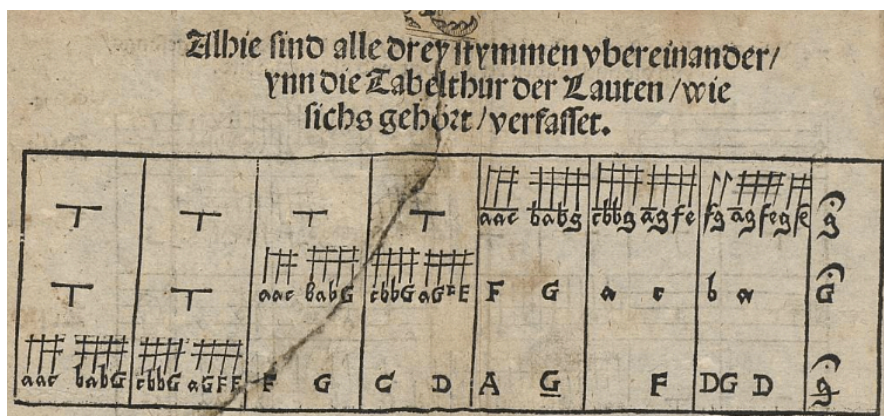 Alhie sind alle drey stymmen vbereinander/
ynn die Tabelthur der Lauten/wie
sichs gehört/verfasset.
aac babg cbbg ag fe fg ag fegfe g
aac babG cbbG aGFE F G a c b a G
aac babG cbbG aGFE F G C D A G F DG D g